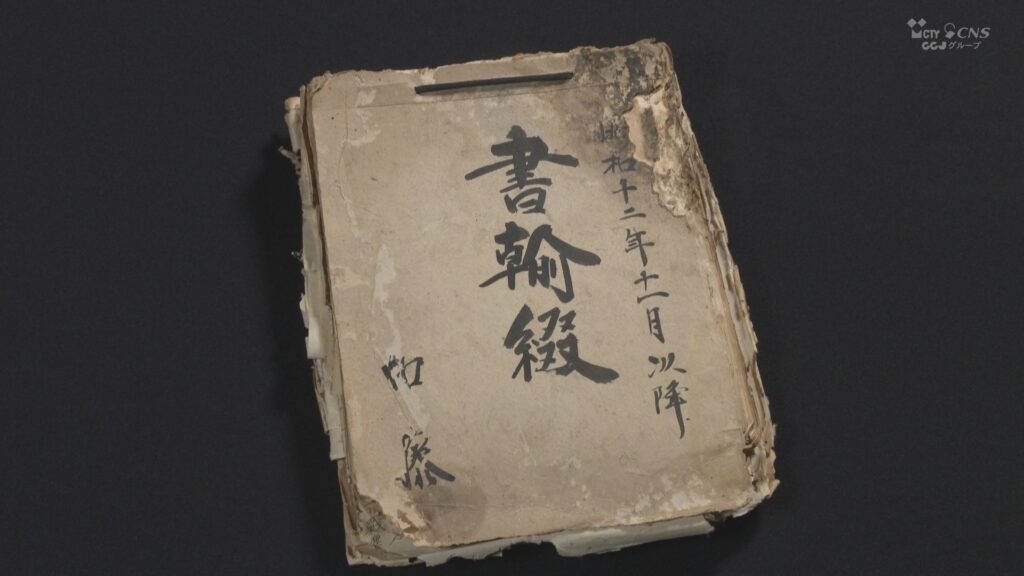 昭和十二年十一月以降
書翰綴
加藤
CTY CNS
CCJグループ